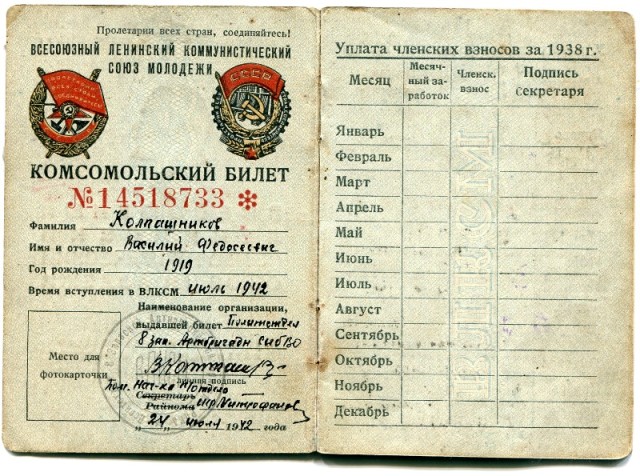 Пролетарии всех стран, соединяйтесь!
ВСЕСОЮЗНЫЙ ЛЕНИНСКИЙ КОММУНИСТИЧЕСКИЙ
СОЮЗ МОЛОДЕЖИ
СССР
КОМСОМОЛЬСКИЙ БИЛЕТ
№14518733 *
Фамилия Колпашников
Имя и отчество Василий Федосеевич
Год рождения 1919
Время вступления в ВЛКСМ июль 1942
Наименование организации,
выдавшей билет Политотдел
8 зап. Артбригады СибВО
Место для
фотокарточки
Личная подпись
Пом. Нач-ка П/отдела
Секретарь
Райкома
„24" июля 1942 года
Уплата членских взносов за 1938 г.
Месяц
Месяч-
ный за-
работок
Членск.
взнос
Подпись
секретаря
Январь
Февраль
Март
Апрель
Май
Июнь
Июль
Август
Сентябрь
Октябрь
Ноябрь
Декабрь
ВЛКСМ